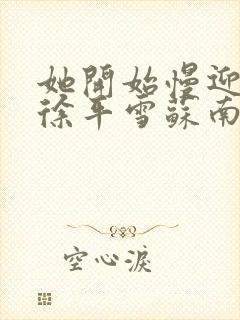 她開始慢迎
徐平雪蘇南
空心淚